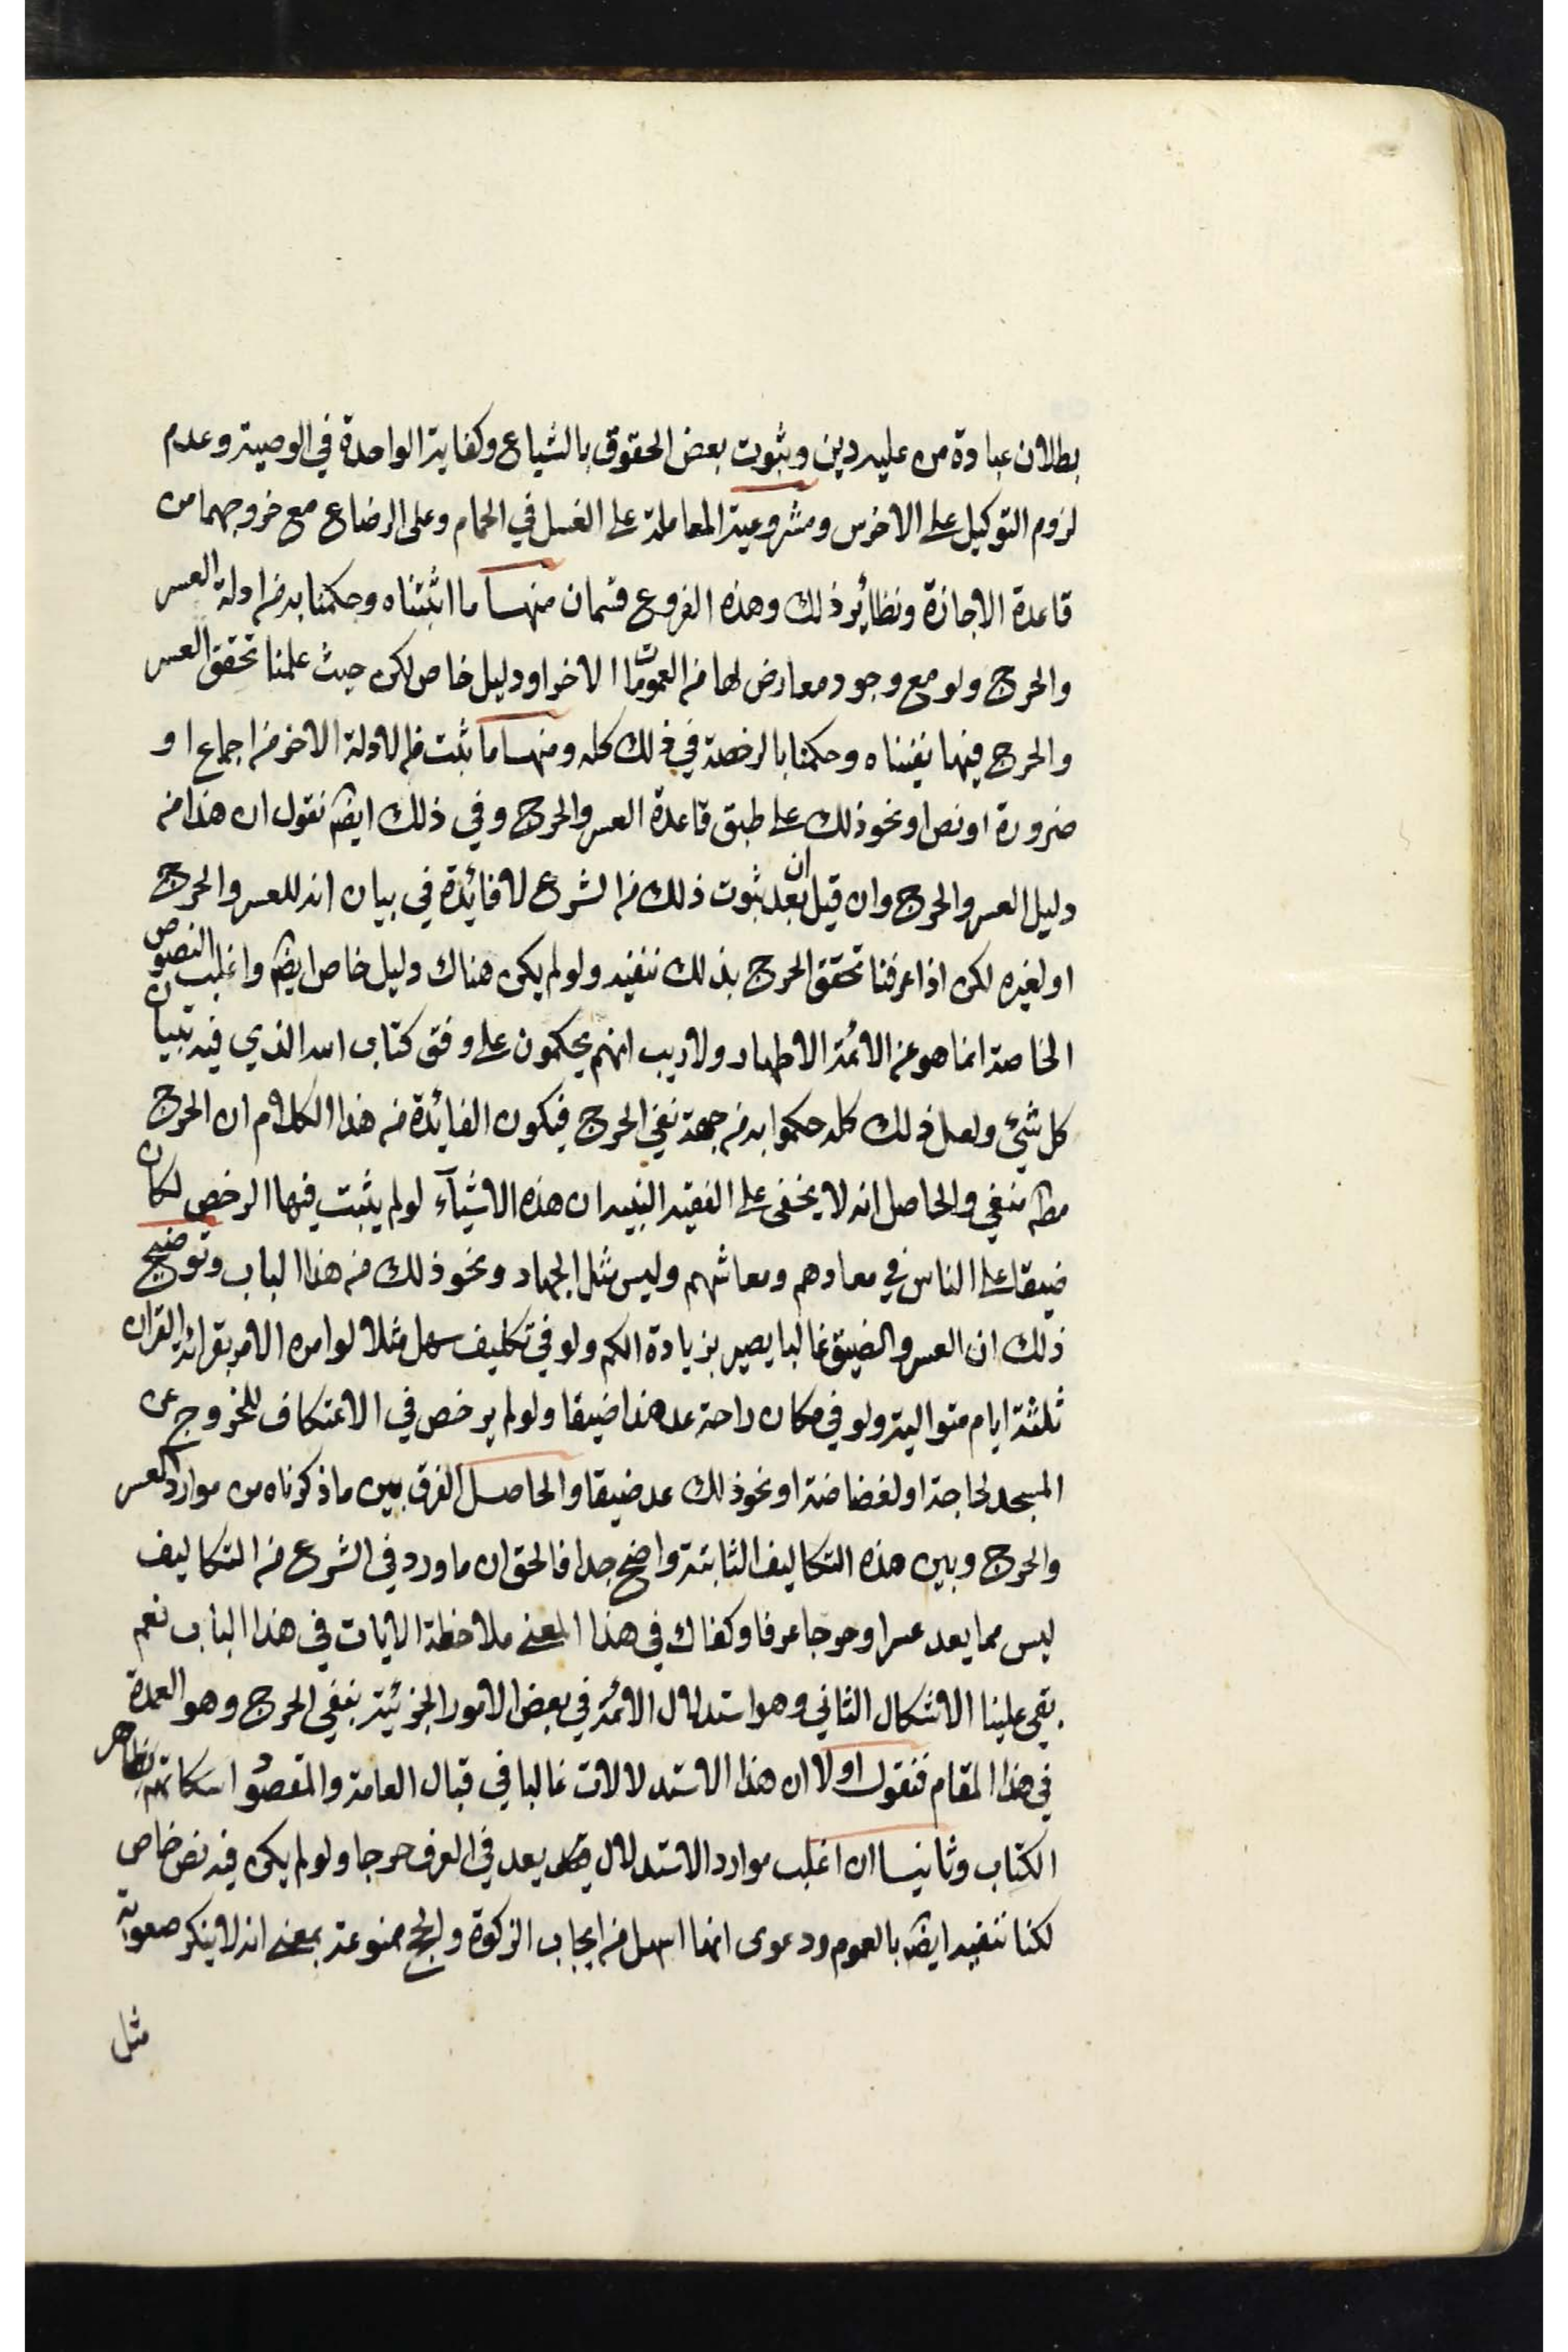 بطلان عبادة من عليه دين وثبوت بعض الحقوق بالشياع وكفاية الواحدة في الوصية وعدم
لزوم التوكيل على الاخرس ومشروعية المعاملة على الغسل في الحمام وعلى الرضاع مع خروجهما من
قاعدة الاجازة ونظائر ذلك وهذه الفروع قسمان منها ما اثبتناه وحكمنا به من ادلة العسر
والحرج ولو مع وجود معارض لها من العمومات الاخر او دليل خاص لكن حيث علمنا تحقق العسر
والحرج فيها نفيناه وحكمنا بالرخصة في ذلك كله ومنها ما ثبت من الادلة الاخر من اجماع او
ضرورة او نص او نحو ذلك على طبق قاعدة العسر والحرج وفي ذلك ايضا نقول ان هذا من
دليل العسر والحرج وان قيل ان بعد ثبوت ذلك من الشرع لا فائدة في بيان انه للعسر والحرج
او لغيره لكن اذا عرفنا تحقق الحرج بذلك ننفيه ولو لم يكن هناك دليل خاص ايضا واغلب النصوص
الخاصة انما هو عن الائمة الاطهار ولا ريب انهم يحكمون على وفق كتاب الله الذي فيه تبيان
كل شيء ولعل ذلك كله حكموا به من جهة نفي الحرج فيكون الفائدة من هذا الكلام ان الحرج
مطم منفي والحاصل انه لا يخفى على الفقيه النبيه ان هذه الاشياء لو لم يثبت فيها الرخص لكان
ضيقا على الناس في معادهم ومعاشهم وليس مثل الجهاد ونحو ذلك من هذا الباب وتوضيح
ذلك ان العسر والضيق غالبا يصير بزيادة الكم ولو في تكليف سهل مثلا لو امره الامر بقرائة القران
ثلثة ايام متوالية ولو في مكان راحة عد هذا ضيقا ولو لم يرخص في الاعتكاف للخروج عن
المسجد لحاجة او لغضاضة او نحو ذلك عد ضيقا والحاصل الفرق بين ما ذكرناه من موارد العسر
والحرج وبين هذه التكاليف الثابتة واضح جدا فالحق ان ما ورد في الشرع من التكاليف
ليس مما يعد عسرا وحرجا عرفا وكفاك في هذا المعنى ملاحظة الايات في هذا الباب نعم
بقي علينا الاشكال الثاني وهو استدلال الائمة في بعض الامور الجزئية بنفي الحرج وهو العمدة
في هذا المقام فنقول اولا ان هذا الاستدلالات غالبا في قبال العامة والمقصود اسكاتهم بظاهر
الكتاب وثانيا ان اغلب موارد الاستدلال يعد في العرف حرجا ولو لم يكن فيه نص خاص
لكنا ننفيه ايضا بالعموم ودعوى انها اسهل من ايجاب الزكوة والحج ممنوعة بمعنى انه لا ينكر صعوبة
مثل